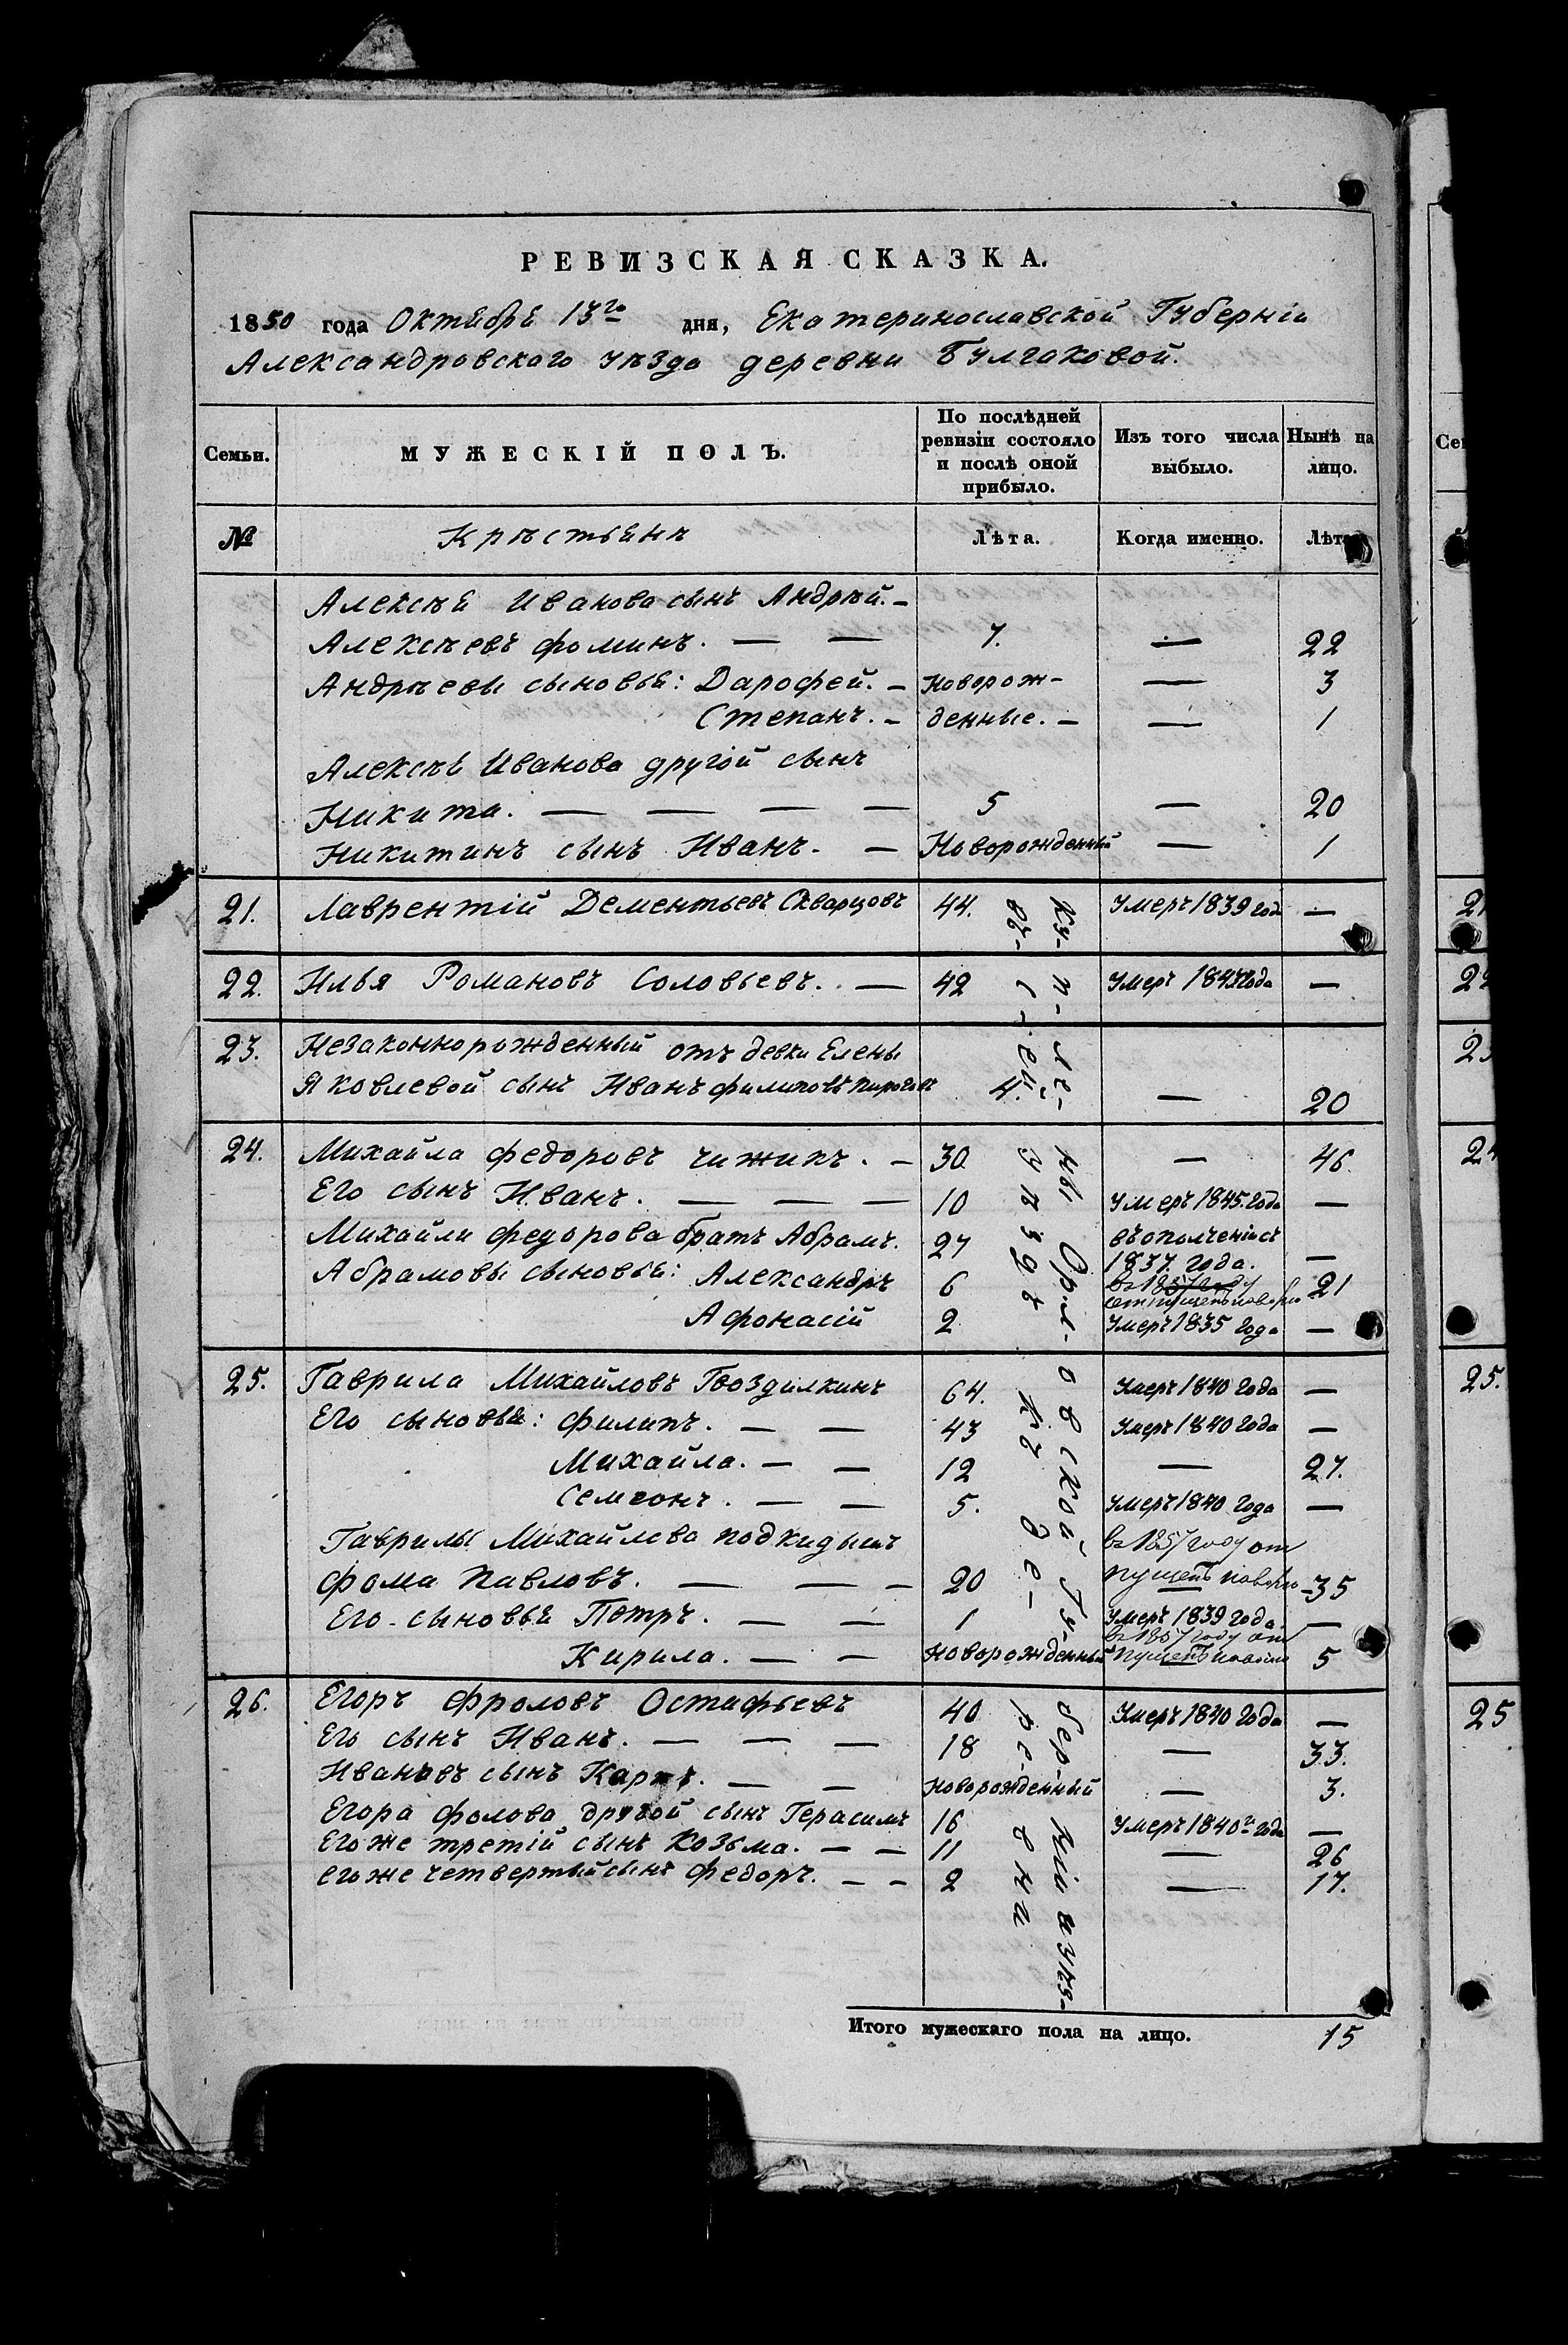 РЕВИЗСКАЯ СКАЗКА.
1850 года Октября 13го дня, Екатеринославской Губерніи
Александровскаго уѣзда деревни Булгаковой.
Семьи.
МУЖЕСКІЙ ПОЛЪ.
По послѣдней ревизіи состояло и послѣ оной прибыло.
Изъ того числа выбыло.
Нынѣ на лицо.
№ Крѣстьянъ Лѣта. Когда именно. Лѣта
Алексѣя Иванова сынъ Андрѣй. –
Алексѣевъ фоминъ. — — 7. — 22
Андрѣевы сыновья: Дарофей. – Новорож- — 3
Степанъ. – денные. – — 1
Алексѣя Иванова другой сынъ
Никита. — — — — 5 — 20
Никитинъ сынъ Иванъ. – Новорожденный — 1
21. Лаврентій Дементьевъ Скварцовъ 44. Умеръ 1839 года —
22. Илья Романовъ Соловьевъ. — 42 Умеръ года —
23. Незаконнорожденный отъ девки Елены
Яковлевой сынъ Иванъ 4. — 20
24. Михайла федоровъ чижикъ. – 30 — 46.
Его сынъ Иванъ. — — — 10 Умеръ 1845. года —
Михайли федорова братъ Абрамъ. 27 въ ополченіе
1837. года. —
Абрамовы сыновья: Александръ 6 21
Афонасій 2 Умеръ 1835 года —
25. Гаврила Михайловъ Гвоздилкинъ 64. Умеръ 1840 года —
Его сыновья: филипъ. — — 43 Умеръ 1840 года —
Михайла. – — 12 — 27.
Семеонъ. — — 5. Умеръ 1840 года —
Гаврилы Михайлова подкидышъ въ 1857 году от
фома Павловъ. — — – 20 пущенъ 35
Его сыновья Петръ. — — 1 Умеръ 1839 года. —
въ 1857 году от
Кирила. — — новорожденный пущенъ 5
26. Егоръ фроловъ Остафьевъ 40 Умеръ 1840 года —
Его сынъ Иванъ. — — — 18 — 33.
Ивановъ сынъ Карпъ. — — новорожденный — 3.
Егора фолова другой сынъ Герасимъ 16 Умеръ 1840го года —
Его же третій сынъ Козьма. — — 11 — 26
его же четвертый сынъ федоръ. – – 2 — 17.
Куплены Орловской Губерніи и уѣз-
Итого мужескаго пола на лицо. 15
Сем
21
23
24
25.
25